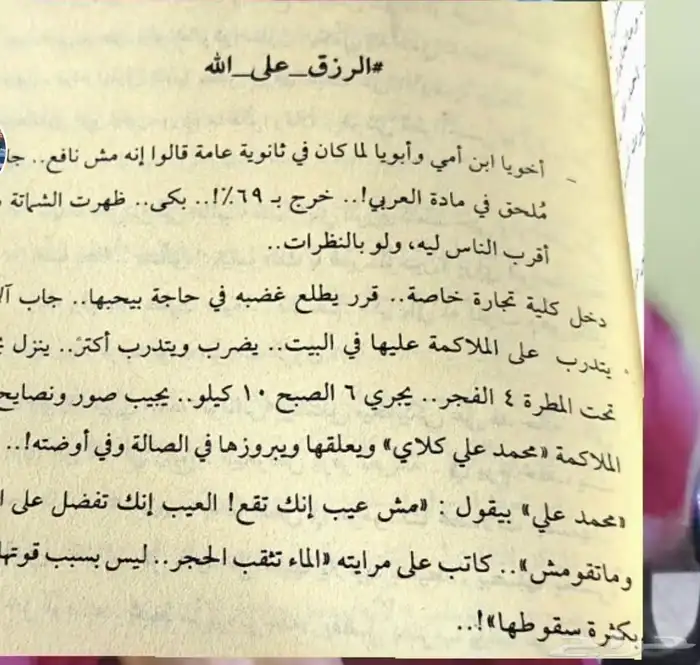 #الرزق_على_الله
أخويا ابن أمي وأبويا لما كان في ثانوية عامة قالوا إنه مش نافع..
مُلحق في مادة العربي!.. خرج بـ ٦٩٪!.. بكى.. ظهرت الشماتة
أقرب الناس ليه، ولو بالنظرات..
دخل كلية تجارة خاصة.. قرر يطلع غضبه في حاجة بيحبها.. جاب
يتدرب على الملاكمة عليها في البيت.. يضرب ويتدرب أكتر.. ينزل
تحت المطرة ٤ الفجر.. يجري ٦ الصبح ١٠ كيلو.. يجيب صور ونصايح
الملاكمة «محمد علي كلاي» ويعلقها ويبروزها في الصالة وفي أوضته!..
«محمد علي» بيقول : «مش عيب إنك تقع! العيب إنك تفضل على
وماتقومش».. كاتب على مرايته «الماء تثقب الحجر.. ليس بسبب قوتها
بكثرة سقوطها»!..